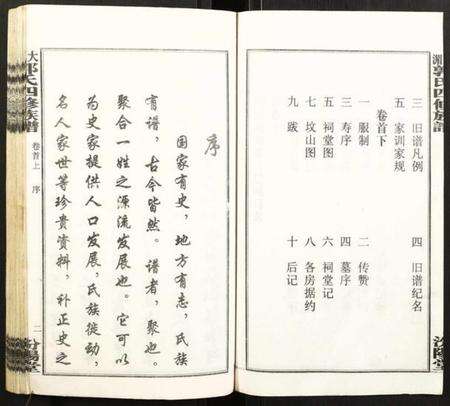 郭氏四修族譜
汾陽堂
三 旧谱凡例 四 旧谱纪名
五 家训家规
卷首下
一 服制 二 传赞
三 寿序 四 墓序
五 祠堂图 六 祠堂记
七 坟山图 八 各房据约
九 跋 十 后记
序
国家有史，地方有志，氏族
有谱，古今皆然。谱者，聚也。
聚合一姓之源流发展也。它可以
为史家提供人口发展，氏族徙动，
名人家世等珍贵资料，补正史之
大郭氏四修族譜 卷首上 序 二 汾陽堂